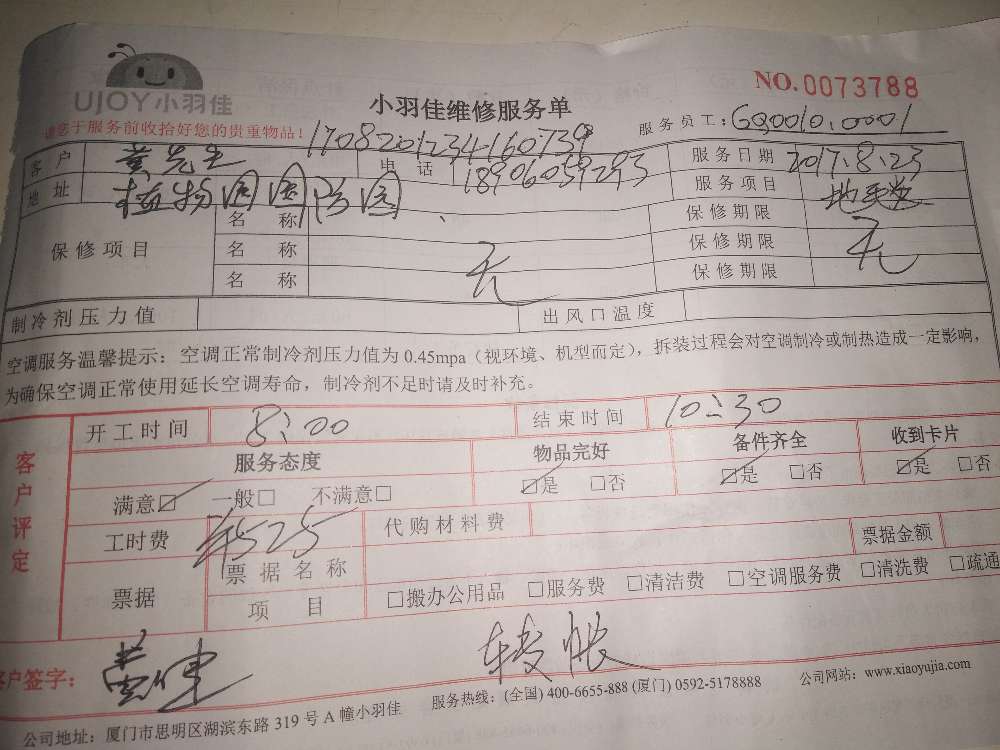 UJOY小羽佳
NO.0073788
小羽佳维修服务单
请您于服务前收拾好您的贵重物品!
服务员工:
1708201234160739
客户 黄先生 电话 18906059293 服务日期 2017.8.23
地址 植物园 服务项目
保修项目 名称 保修期限
名称 无 保修期限 无
名称 保修期限
制冷剂压力值 出风口温度
空调服务温馨提示：空调正常制冷剂压力值为0.45mpa（视环境、机型而定），拆装过程会对空调制冷或制热造成一定影响，
为确保空调正常使用延长空调寿命，制冷剂不足时请及时补充。
客户评定
开工时间 8:00 结束时间 10:30
服务态度 物品完好 备件齐全 收到卡片
满意☑ 一般□ 不满意□ ☑是 □否 ☑是 □否 ☑是 □否
工时费 525 代购材料费
票据 票据名称 票据金额
项目 □搬办公用品 □服务费 □清洁费 □空调服务费 □清洗费 □疏通
客户签字： 转帐
公司地址：厦门市思明区湖滨东路319号A幢小羽佳 服务热线：(全国) 400-6655-888 (厦门) 0592-5178888 公司网站：www.xiaoyujia.com